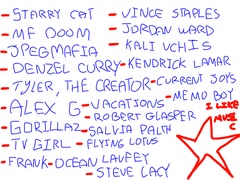 - STARRY CAT
- MF DOOM
- JPEGMAFIA
- DENZEL CURRY
- TYLER, THE CREATOR
- ALEX G
- GORILLAZ
- TV GIRL
- FRANK OCEAN
- VINCE STAPLES
- JORDAN WARD
- KALI UCHIS
- KENDRICK LAMAR
- CURRENT JOYS
- MEMO BOY
- VACATIONS
- ROBERT GLASPER
- SALVIA PALTH
- FLYING LOTUS
- LAUFEY
- STEVE LACY
I LIKE
MUSI
C